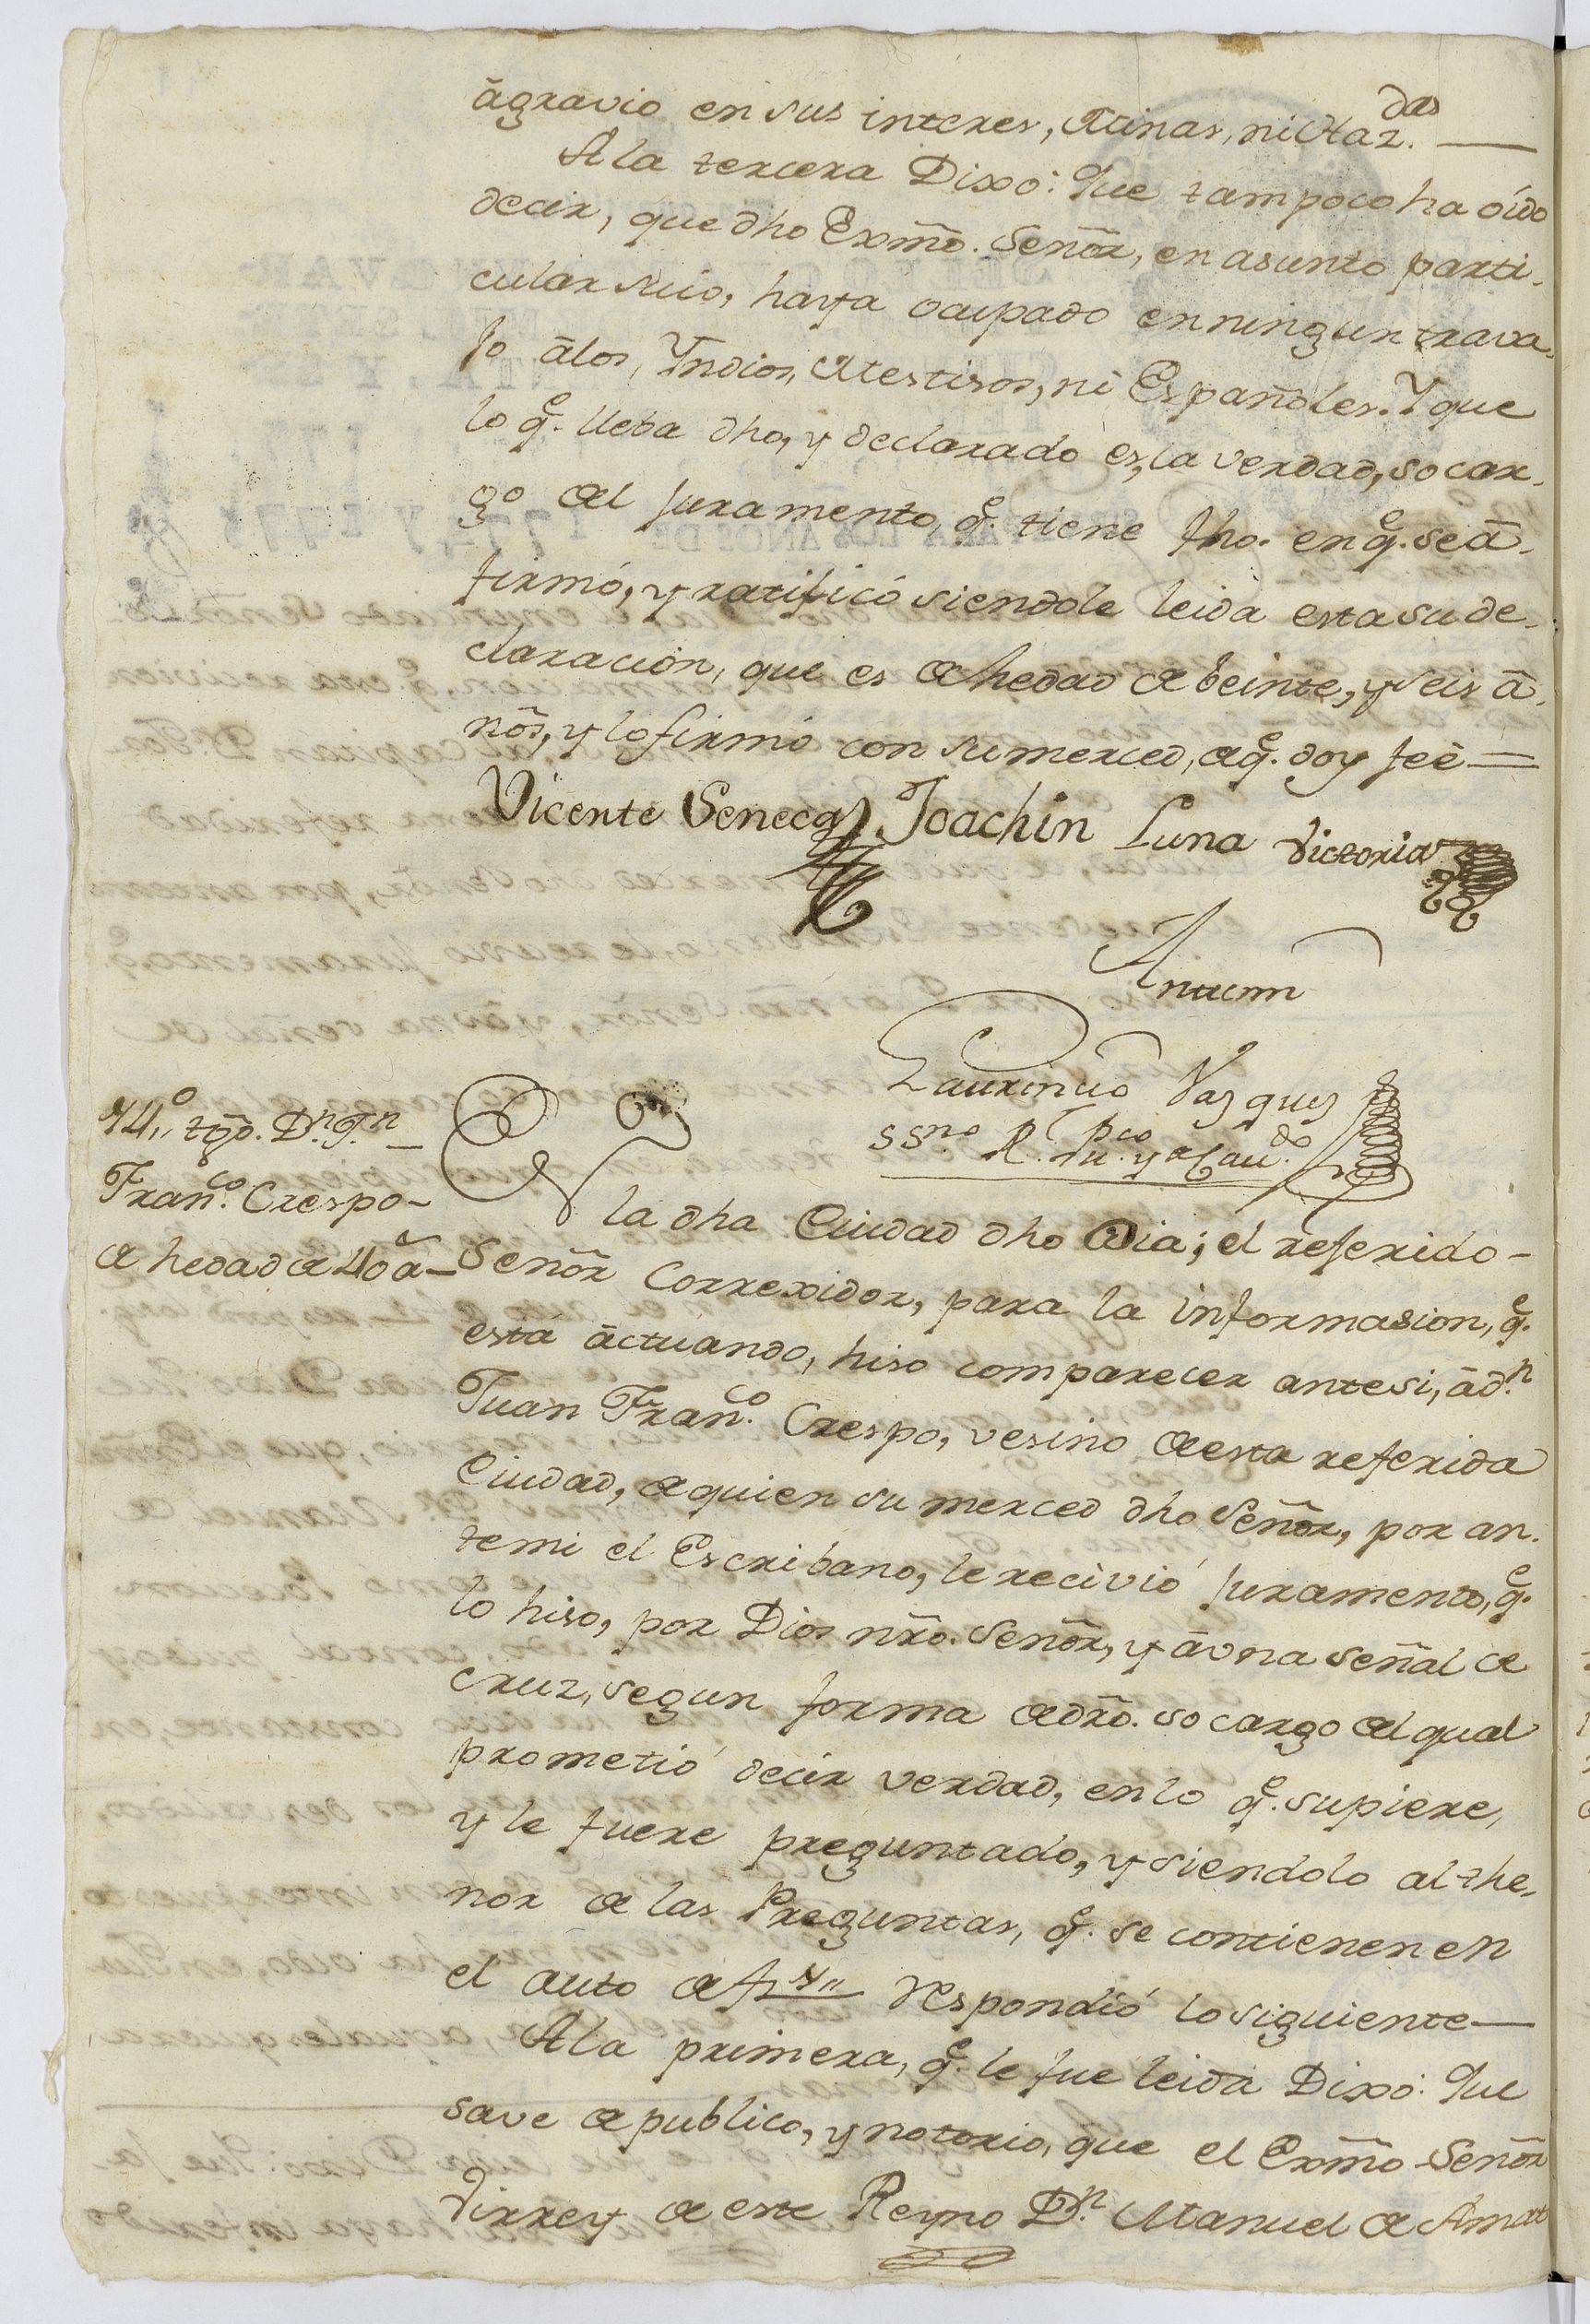 āgravio en sus interes, Minas, ni Haz.das
A la tercera Dixo: Que tampoco ha oído
decir, que dho Exmõ. Señor, en asunto parti-
cular suio, haya ocupado en ningun trava-
jo álos, Yndios, Mestisos, ni Españoles. Y que
lo q.e lleba dho, y declarado es, la verdad, so car-
go del juramento, q.e tiene fho. en q.e se á-
firmó, y ratificó siendole leida esta su de-
claracion, que es de hedad de beinte, y seis á-
ños, y lo firmó con su merced, de q.e doy feé
Vicente Seneca
Joachin Luna Victoria
Antemi
Laurencio Vasquez
SSno R. Pu.co y de Cau.do
14,,o tgo. Dn. Jn
Fran.co Crespo
de hedad de 40 a
EN la dha Ciudad dho Dia; el referido
Señor Correxidor, para la informasion, q.e
está áctuando, hiso comparecer ante si, á d.n
Juan Fran.co Crespo, vesino de esta referida
Ciudad, de quien su merced dho Señor, por an-
temi el Escribano, le recivió juramento, q.e
lo hiso, por Dios nrõ. Señor, y á vna señal de
cruz, segun forma de drõ. so cargo del qual
prometió decir verdad, en lo q.e supiere,
y le fuere preguntado, y siendolo al the-
nor de las Preguntas, q.e se contienen en
el auto de f 1,, respondió lo siguiente
A la primera, q.e le fue leida Dixo: Que
save de publico, y notorio, que el Exmõ Señor
Virrey de este Reyno Dn. Manuel de Amat